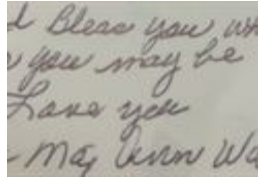 d Bless you wh
you may be
Love you
May Ann Wa